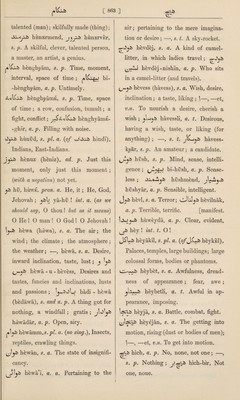 هنگام [ 868 ] هیچ
talented (man); skilfully made (thing);
هنرمند hünermend, هنرور hünerver,
s. p. A skilful, clever, talented person,
a master, an artist, a genius.
هنگام hengyām, s. p. Time, moment,
interval, space of time; بی هنگام bī-
-hengyām, a. p. Untimely.
هنگامه hengyāme, s. p. Time, space
of time; a row, confusion, tumult; a
fight, conflict; هنگامه گیر hengyāmé-
-gīr, a. p. Filling with noise.
هنود hünūd, s. pl. a. (of هندی hindī),
Indians, East-Indians.
هنوز hénūz (hénüz), ad. p. Just this
moment, only just this moment;
(with a negative) not yet.
هو hū, hüwé, pron. a. He, it; He, God,
Jehovah; یاهو yā-hū! int. a. (as we
should say, O thou! but as it means)
O He! O man! O God! O Jehovah!
هوا hewa (hāwa), s. a. The air; the
wind; the climate; the atmosphere;
the weather; —, hewā, s. a. Desire,
inward inclination, taste, lust; هوا و
هوس hewā-u-hèvèss, Desires and
tastes, fancies and inclinations, lusts
and passions; بادهوا bādi-hèwā
(bèdāwā), s. and a. p. A thing got for
nothing, a windfall; gratis; هوادار
hèwādār, a. p. Open, airy.
هوام hewāmm, s. pl. a. (no sing.), Insects,
reptiles, crawling things.
هوان hèwān, s. a. The state of insignifi-
cancy.
هوائی hèwā'ī, a. a. Pertaining to the
air; pertaining to the mere imagina-
tion or desire; —, s. t. A sky-rocket.
هودج hèvdéj, s. a. A kind of camel-
litter, in which ladies travel; هودج
نشین hèvdéj-nishīn, a. p. Who sits
in a camel-litter (and travels).
هوس hèvess (hāvess), s. a. Wish, desire,
inclination; a taste, liking; —, -et,
v. a. To nourish a desire, cherish a
wish; هوسلو hèvessli, a. t. Desirous,
having a wish, taste, or liking (for
anything); —, -i, t. هوسکار hèvess-
kyār, s. p. An amateur; a candidate.
هوش hūsh, s. p. Mind, sense, intelli-
gence; بیهوش bī-hūsh, a. p. Sense-
less; هوشمند hūshmènd, هوشیار
hūshyār, s. p. Sensible, intelligent.
هول hèvl, s. a. Terror; هولناک hèvlnāk,
a. p. Terrible, terrific. [manifest.
هویدا hüwèydā, a. p. Clear, evident,
هی hèy! int. t. O!
هیاکل hèyākil, s. pl. a. (of هیکل hèykèl),
Palaces, temples, large buildings; large
colossal forms, bodies or phantoms.
هیبت hèybét, s. a. Awfulness, dread-
ness of appearance; fear, awe;
هیبتلو hèybetli, a. t. Awful in ap-
pearance, imposing.
هیجا hèyjā, s. a. Battle, combat, fight.
هیجان hèyèjān, s. a. The getting into
motion, rising (dust or bodies of men);
—, -et, v. n. To get into motion.
هیچ hich, a. p. No, none, not one; —,
s. p. Nothing; هیچ بر hich-bir, Not
one, none.